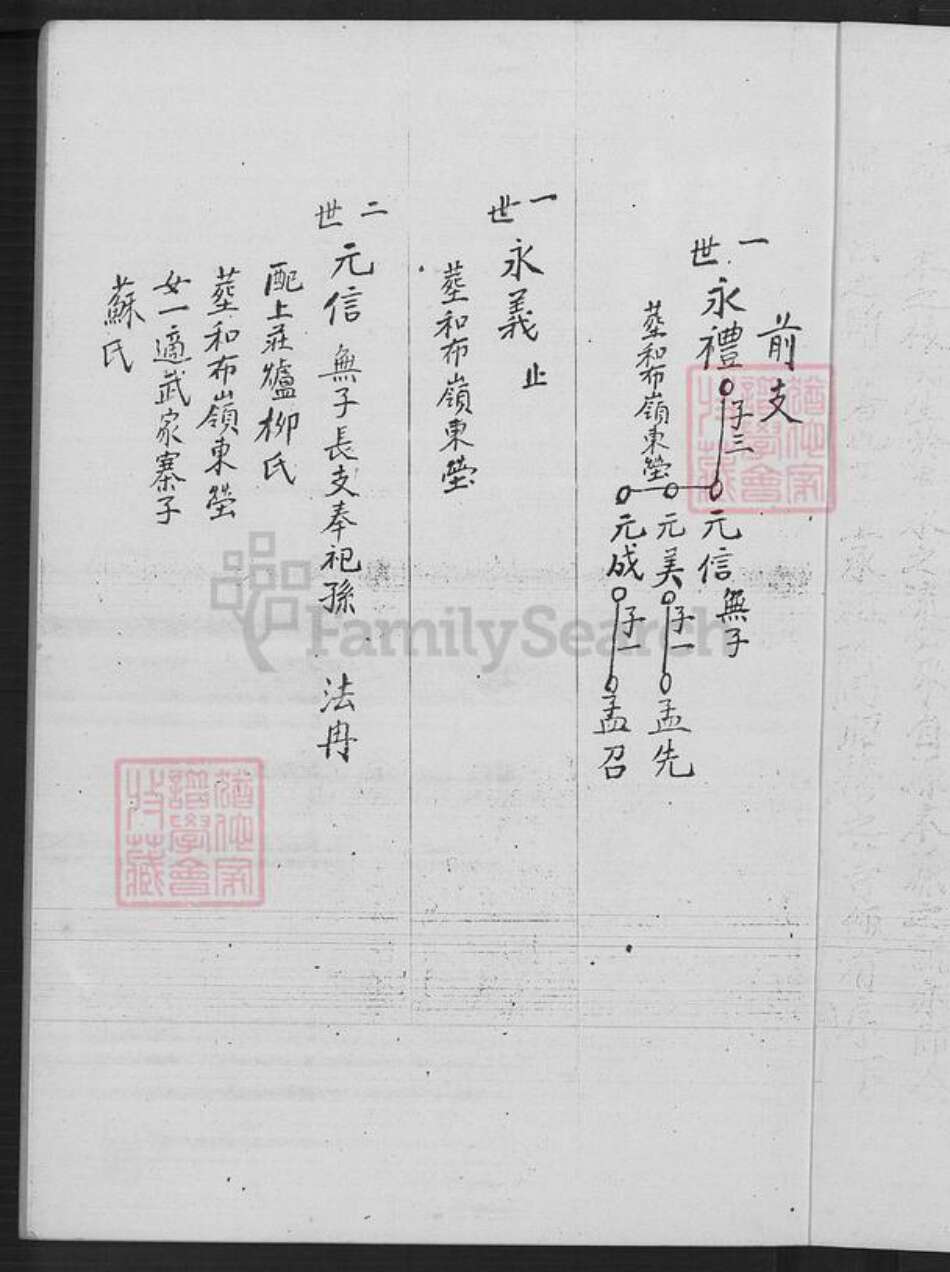 前支
一世 永禮 子三
元信 無子
元美 子一 孟先
元成 子一 孟召
塟和布嶺東塋
一世 永義 止
塟和布嶺東塋
二世 元信 無子長支奉祀孫 法冉
配上莊爐柳氏
塟和布嶺東塋
女一適武家寨子
蘇氏
譜學會
收藏
譜學會
收藏
FamilySearch